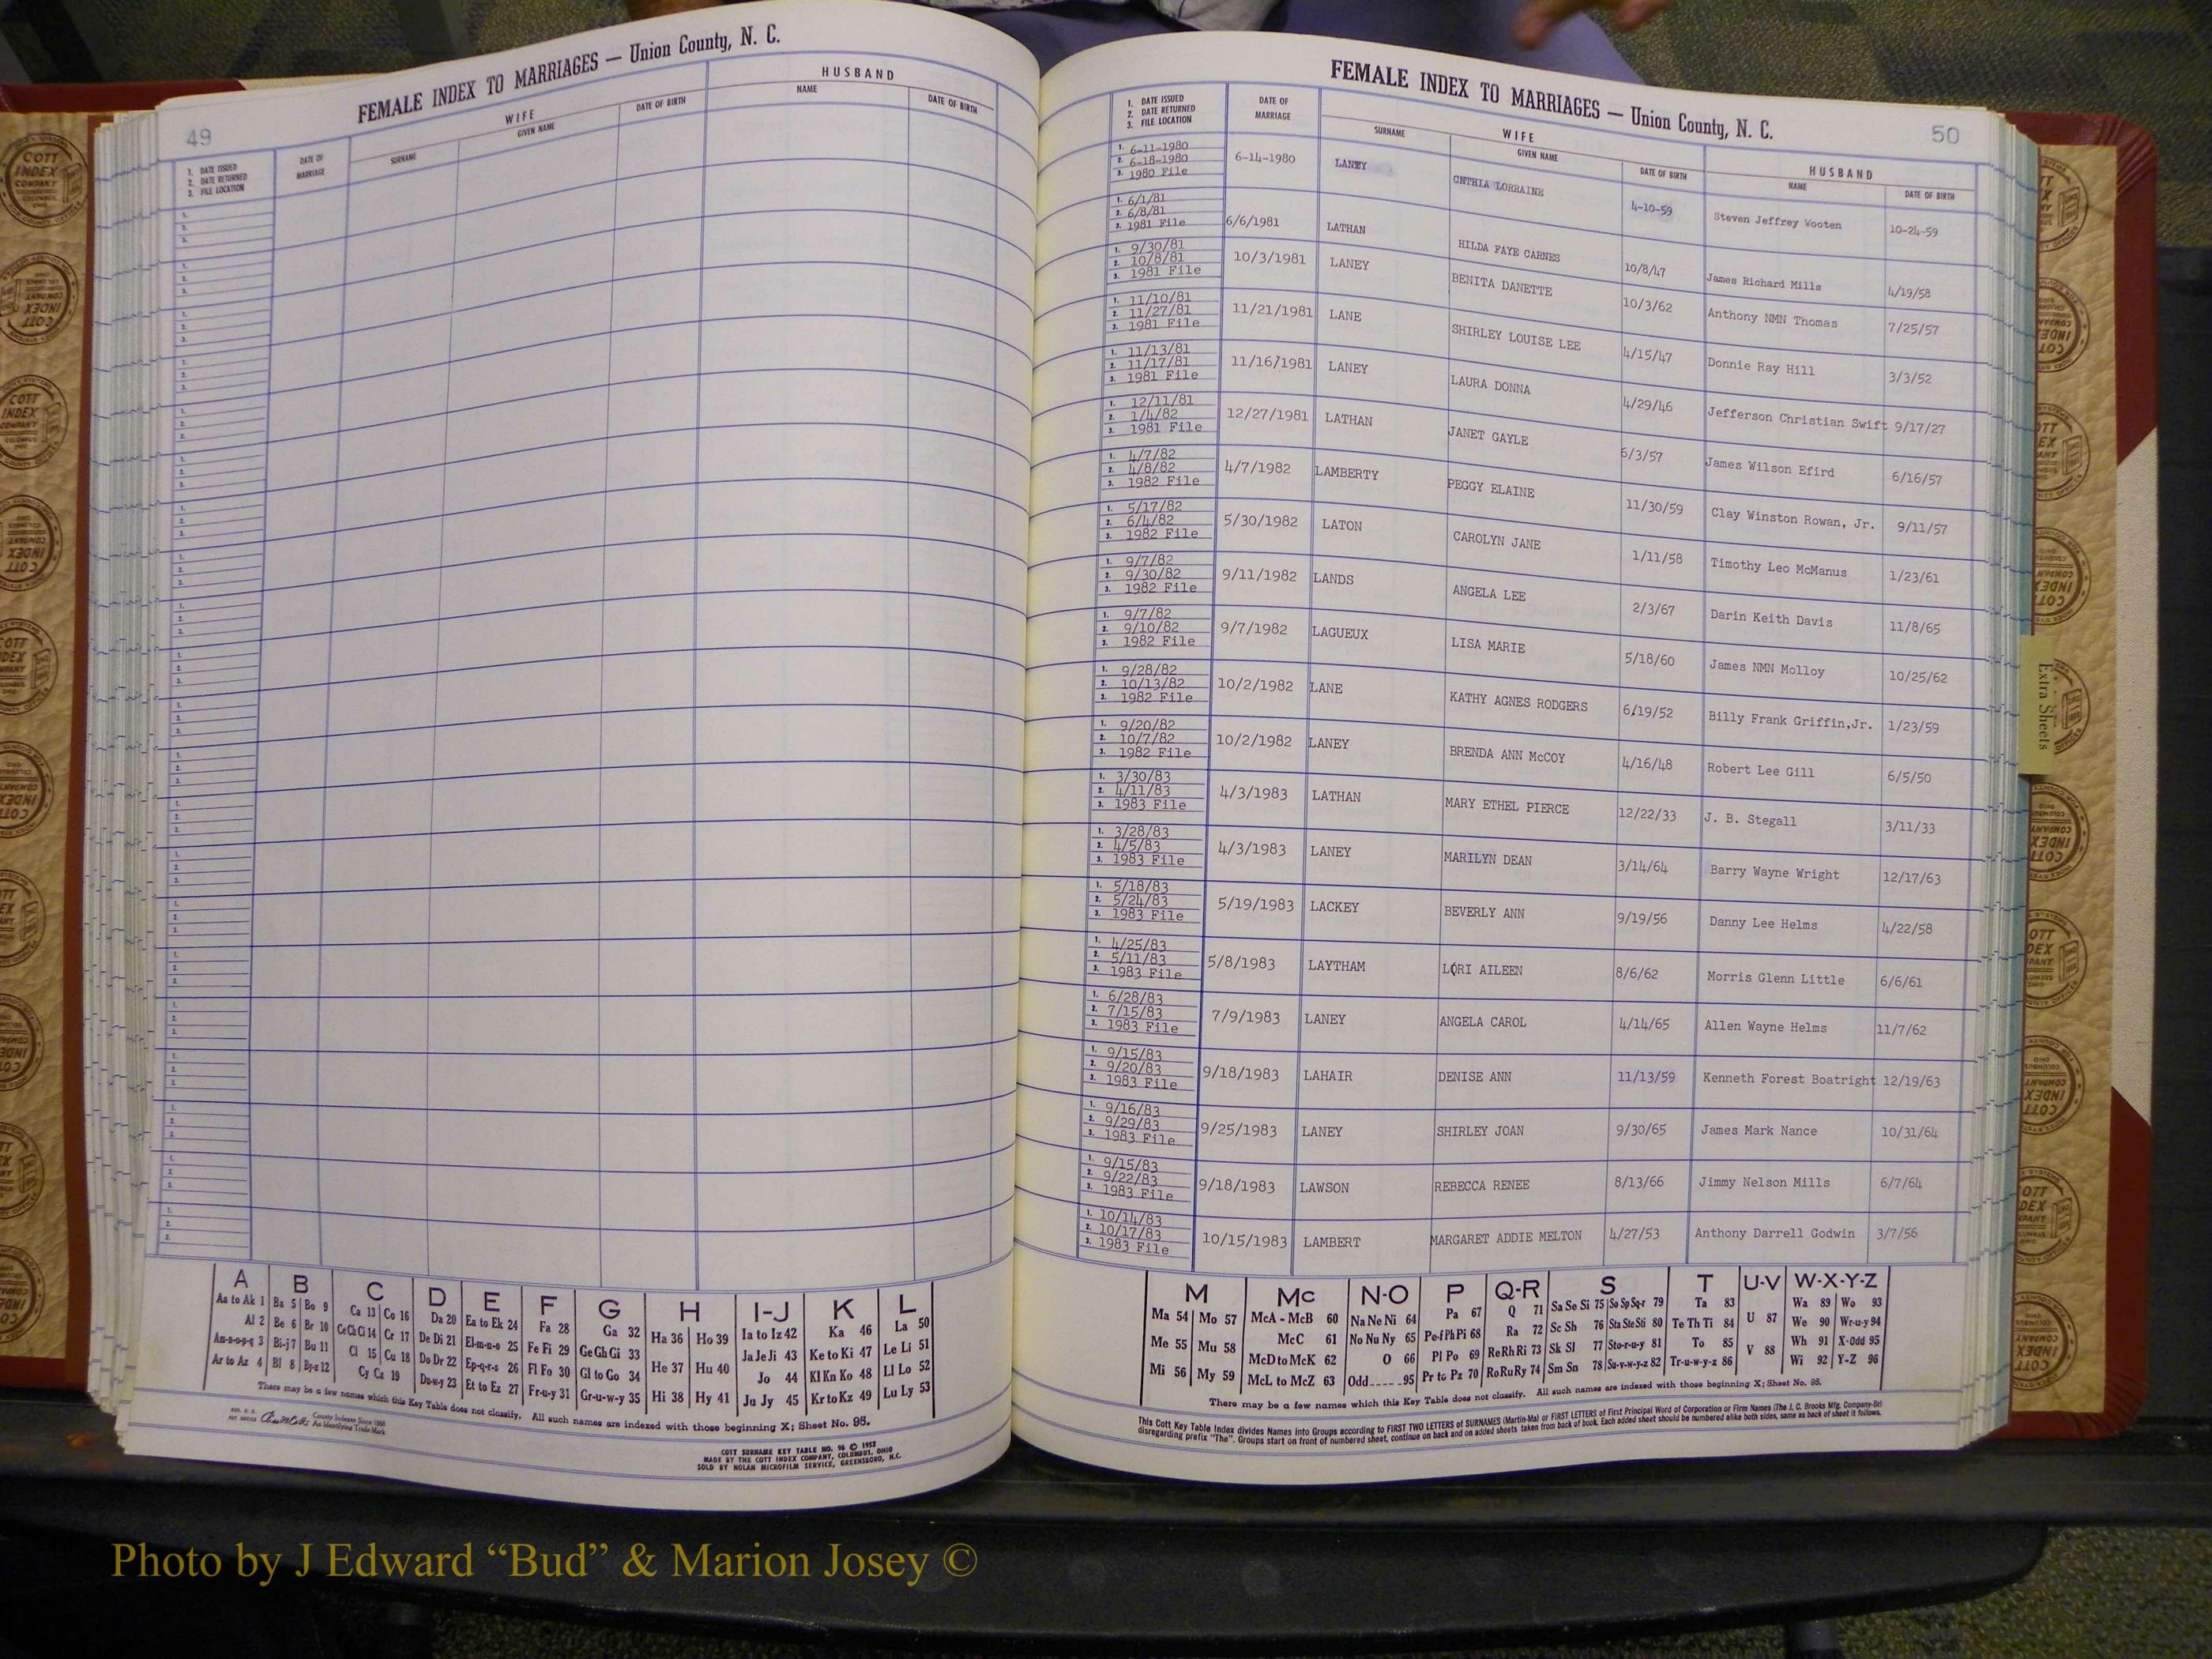 FEMALE INDEX TO MARRIAGES — Union County, N. C.
49
1. DATE ISSUED
2. DATE RETURNED
3. FILE LOCATION
DATE OF MARRIAGE
WIFE
SURNAME GIVEN NAME DATE OF BIRTH
HUSBAND
NAME DATE OF BIRTH
A B C D E F G H I-J K L
Aa to Ak 1 Ba 5 Bo 9 Ca 13 Co 16 Da 20 Ea to Ek 24 Fa 28 Ga 32 Ha 36 Ho 39 Ia to Iz 42 Ka 46 La 50
Al 2 Be 6 Br 10 Ce Ch Ci 14 Cr 17 De Di 21 El-m-n-o 25 Fe Fi 29 Ge Gh Gi 33 He 37 Hu 40 Ja Je Ji 43 Ke to Ki 47 Le Li 51
Am-n-o-p-q 3 Bi-j 7 Bu 11 Cl 15 Cu 18 Do Dr 22 Ep-q-r-s 26 Fl Fo 30 Gl to Go 34 Hi 38 Hy 41 Jo 44 Kl Kn Ko 48 Ll Lo 52
Ar to Az 4 Bl 8 By-z 12 Cy Cz 19 Du-w-y 23 Et to Ez 27 Fr-u-y 31 Gr-u-w-y 35 Ju Jy 45 Kr to Kz 49 Lu Ly 53
There may be a few names which this Key Table does not classify. All such names are indexed with those beginning X; Sheet No. 95.
County Indexes Since 1888
An Identifying Trade Mark
COTT SURNAME KEY TABLE NO. 96 © 1952
MADE BY THE COTT INDEX COMPANY, COLUMBUS, OHIO
SOLD BY NOLAN MICROFILM SERVICE, GREENSBORO, N.C.
FEMALE INDEX TO MARRIAGES — Union County, N. C.
50
1. DATE ISSUED
2. DATE RETURNED
3. FILE LOCATION
DATE OF MARRIAGE
WIFE
SURNAME GIVEN NAME DATE OF BIRTH
HUSBAND
NAME DATE OF BIRTH
1. 6-11-1980
2. 6-18-1980
3. 1980 File
6-14-1980 LANEY CNTHIA LORRAINE 4-10-59 Steven Jeffrey Wooten 10-24-59
1. 6/1/81
2. 6/8/81
3. 1981 File
6/6/1981 LATHAN HILDA FAYE CARNES 10/8/47 James Richard Mills 4/19/58
1. 9/30/81
2. 10/8/81
3. 1981 File
10/3/1981 LANEY BENITA DANETTE 10/3/62 Anthony NMN Thomas 7/25/57
1. 11/10/81
2. 11/27/81
3. 1981 File
11/21/1981 LANE SHIRLEY LOUISE LEE 4/15/47 Donnie Ray Hill 3/3/52
1. 11/13/81
2. 11/17/81
3. 1981 File
11/16/1981 LANEY LAURA DONNA 4/29/46 Jefferson Christian Swift 9/17/27
1. 12/11/81
2. 1/4/82
3. 1981 File
12/27/1981 LATHAN JANET GAYLE 6/3/57 James Wilson Efird 6/16/57
1. 4/7/82
2. 4/8/82
3. 1982 File
4/7/1982 LAMBERTY PEGGY ELAINE 11/30/59 Clay Winston Rowan, Jr. 9/11/57
1. 5/17/82
2. 6/4/82
3. 1982 File
5/30/1982 LATON CAROLYN JANE 1/11/58 Timothy Leo McManus 1/23/61
1. 9/7/82
2. 9/30/82
3. 1982 File
9/11/1982 LANDS ANGELA LEE 2/3/67 Darin Keith Davis 11/8/65
1. 9/7/82
2. 9/10/82
3. 1982 File
9/7/1982 LAGUEUX LISA MARIE 5/18/60 James NMN Molloy 10/25/62
1. 9/28/82
2. 10/13/82
3. 1982 File
10/2/1982 LANE KATHY AGNES RODGERS 6/19/52 Billy Frank Griffin,Jr. 1/23/59
1. 9/20/82
2. 10/7/82
3. 1982 File
10/2/1982 LANEY BRENDA ANN McCOY 4/16/48 Robert Lee Gill 6/5/50
1. 3/30/83
2. 4/11/83
3. 1983 File
4/3/1983 LATHAN MARY ETHEL PIERCE 12/22/33 J. B. Stegall 3/11/33
1. 3/28/83
2. 4/5/83
3. 1983 File
4/3/1983 LANEY MARILYN DEAN 3/14/64 Barry Wayne Wright 12/17/63
1. 5/18/83
2. 5/24/83
3. 1983 File
5/19/1983 LACKEY BEVERLY ANN 9/19/56 Danny Lee Helms 4/22/58
1. 4/25/83
2. 5/11/83
3. 1983 File
5/8/1983 LAYTHAM LORI AILEEN 8/6/62 Morris Glenn Little 6/6/61
1. 6/28/83
2. 7/15/83
3. 1983 File
7/9/1983 LANEY ANGELA CAROL 4/14/65 Allen Wayne Helms 11/7/62
1. 9/15/83
2. 9/20/83
3. 1983 File
9/18/1983 LAHAIR DENISE ANN 11/13/59 Kenneth Forest Boatright 12/19/63
1. 9/16/83
2. 9/29/83
3. 1983 File
9/25/1983 LANEY SHIRLEY JOAN 9/30/65 James Mark Nance 10/31/64
1. 9/15/83
2. 9/22/83
3. 1983 File
9/18/1983 LAWSON REBECCA RENEE 8/13/66 Jimmy Nelson Mills 6/7/64
1. 10/14/83
2. 10/17/83
3. 1983 File
10/15/1983 LAMBERT MARGARET ADDIE MELTON 4/27/53 Anthony Darrell Godwin 3/7/56
M Mc N-O P Q-R S T U-V W-X-Y-Z
Ma 54 Mo 57 McA - McB 60 Na Ne Ni 64 Pa 67 Q 71 Sa Se Si 75 So Sp Sq-r 79 Ta 83 U 87 Wa 89 Wo 93
Me 55 Mu 58 McC 61 No Nu Ny 65 Pe-f Ph Pi 68 Ra 72 Sc Sh 76 Sta Ste Sti 80 Te Th Ti 84 V 88 We 90 Wr-u-y 94
Mi 56 My 59 McD to McK 62 O 66 Pl Po 69 Re Rh Ri 73 Sk Sl 77 Sto-r-u-y 81 To 85 Wh 91 X-Odd 95
McL to McZ 63 Odd 95 Pr to Pz 70 Ro Ru Ry 74 Sm Sn 78 Su-v-w-y-z 82 Tr-u-w-y-z 86 Wi 92 Y-Z 96
There may be a few names which this Key Table does not classify. All such names are indexed with those beginning X; Sheet No. 95.
This Cott Key Table Index divides Names into Groups according to FIRST TWO LETTERS of SURNAMES (Martin-Ma) or FIRST LETTERS of First Principal Word of Corporation or Firm Names (The J. C. Brooks Mfg. Company-Br)
disregarding prefix "The". Groups start on front of numbered sheet, continue on back and on added sheets taken from back of book. Each added sheet should be numbered alike both sides, same as back of sheet it follows.
Extra Sheets
COTT
INDEX
COMPANY
Photo by J Edward “Bud” & Marion Josey ©